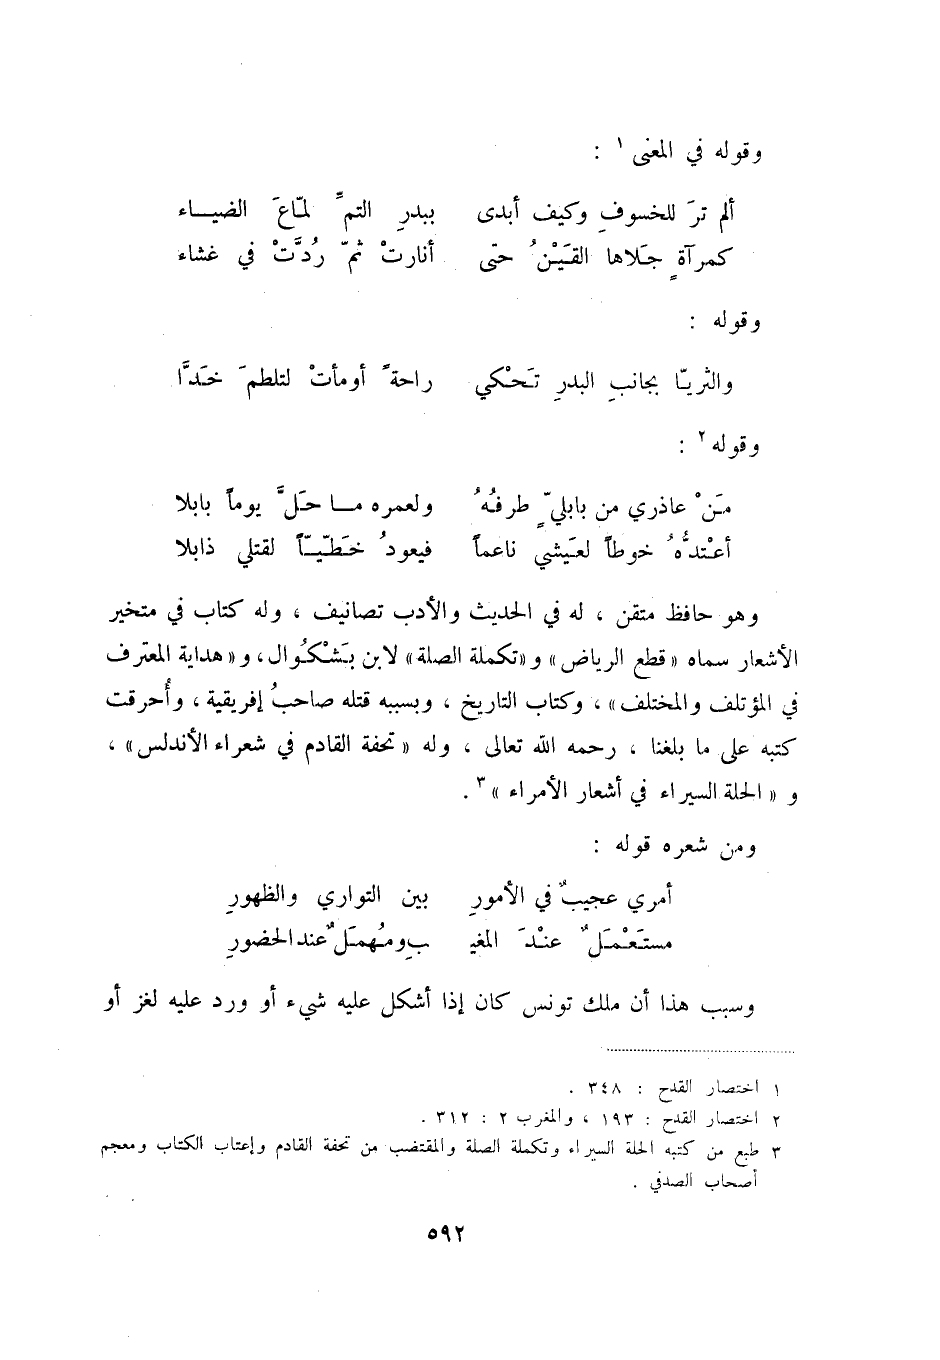 وقوله في المعنى ١ :
ألم ترَ للخسوفِ وكيف أبدى ببدرِ التمِّ لمّاعَ الضيــاء
كمرآةٍ جَلاها القَيْنُ حتّى أنارتْ ثمّ رُدَّتْ في غشاء
وقوله :
والثريّا بجانبِ البدرِ تَحْكي راحةً أومأتْ لتلطمَ خَدَّا
وقوله ٢ :
مَنْ عاذري من بابليٍّ طرفُهُ ولعمره مــا حَلَّ يوماً بابلا
أعْتدُّهُ خوطاً لعَيشي ناعماً فيعودُ خَطّيّاً لقتلي ذابلا
وهو حافظ متقن ، له في الحديث والأدب تصانيف ، وله كتاب في متخير
الأشعار سماه « قطع الرياض » و« تكملة الصلة » لابن بَشْكُوال ، و« هداية المعترف
في المؤتلف والمختلف » ، وكتاب التاريخ ، وبسببه قتله صاحبُ إفريقية ، وأُحرقت
كتبه على ما بلغنا ، رحمه الله تعالى ، وله « تحفة القادم في شعراء الأندلس » ،
و « الحلة السيراء في أشعار الأمراء » ٣ .
ومن شعره قوله :
أمري عجيبٌ في الأمورِ بين التواري والظهورِ
مستَعْمَلٌ عنْدَ المغيـ ـبِ ومُهمَلٌ عند الحضورِ
وسبب هذا أن ملك تونس كان إذا أشكل عليه شيء أو ورد عليه لغز أو
١ اختصار القدح : ٣٤٨ .
٢ اختصار القدح : ١٩٣ ، والمغرب ٢ : ٣١٢ .
٣ طبع من كتبه الحلة السيراء وتكملة الصلة والمقتضب من تحفة القادم وإعتاب الكتاب ومعجم
أصحاب الصدفي .
٥٩٢